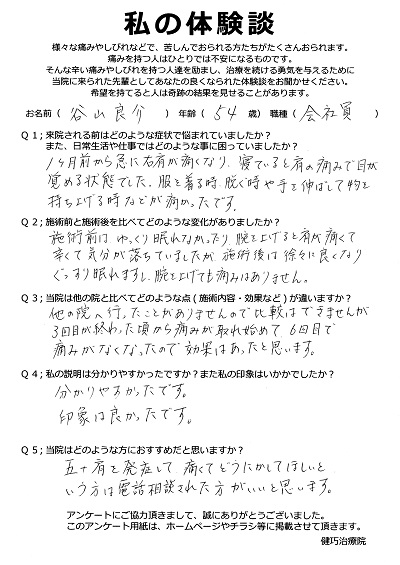 私の体験談
様々な痛みやしびれなどで、苦しんでおられる方たちがたくさんおられます。
痛みを持つ人はひとりでは不安になるものです。
そんな辛い痛みやしびれを持つ人達を励まし、治療を続ける勇気を与えるために
当院に来られた先輩としてあなたの良くなられた体験談をお聞かせください。
希望を持てると人は奇跡の結果を見せることがあります。
お名前（ 谷山良介 ） 年齢（ 54 歳） 職種（ 会社員 ）
Q１；来院される前はどのような症状で悩まれていましたか？
また、日常生活や仕事ではどのような事に困っていましたか？
1ヶ月前から急に右肩が痛くなり、寝ていると肩の痛みで目が
覚める状態でした。服を着る時、脱ぐ時や手を伸ばして物を
持ち上げる時などが痛かったです。
Q２；施術前と施術後を比べてどのような変化がありましたか？
施術前は ゆっくり眠れなかったり、腕を上げると肩が痛くて
辛くて気分が落ちていましたが、施術後は徐々に良くなり
ぐっすり眠れますし、腕を上げても痛みはありません。
Q３；当院は他の院と比べてどのような点（ 施術内容・効果など ）が違いますか？
他の院へ行ったことがありませんので比較はできませんが
3回目が終わった頃から痛みが取れ始めて、6回目で
痛みがなくなったので効果はあったと思います。
Q４；私の説明は分かりやすかったですか？また私の印象はいかかでしたか？
分かりやすかったです。
印象は良かったです。
Q５；当院はどのような方におすすめだと思いますか？
五十肩を発症して 痛くてどうにかしてほしいと
いう方は電話相談された方がいいと思います。
アンケートにご協力頂きまして、誠にありがとうございました。
このアンケート用紙は、ホームページやチラシ等に掲載させて頂きます。
健巧治療院